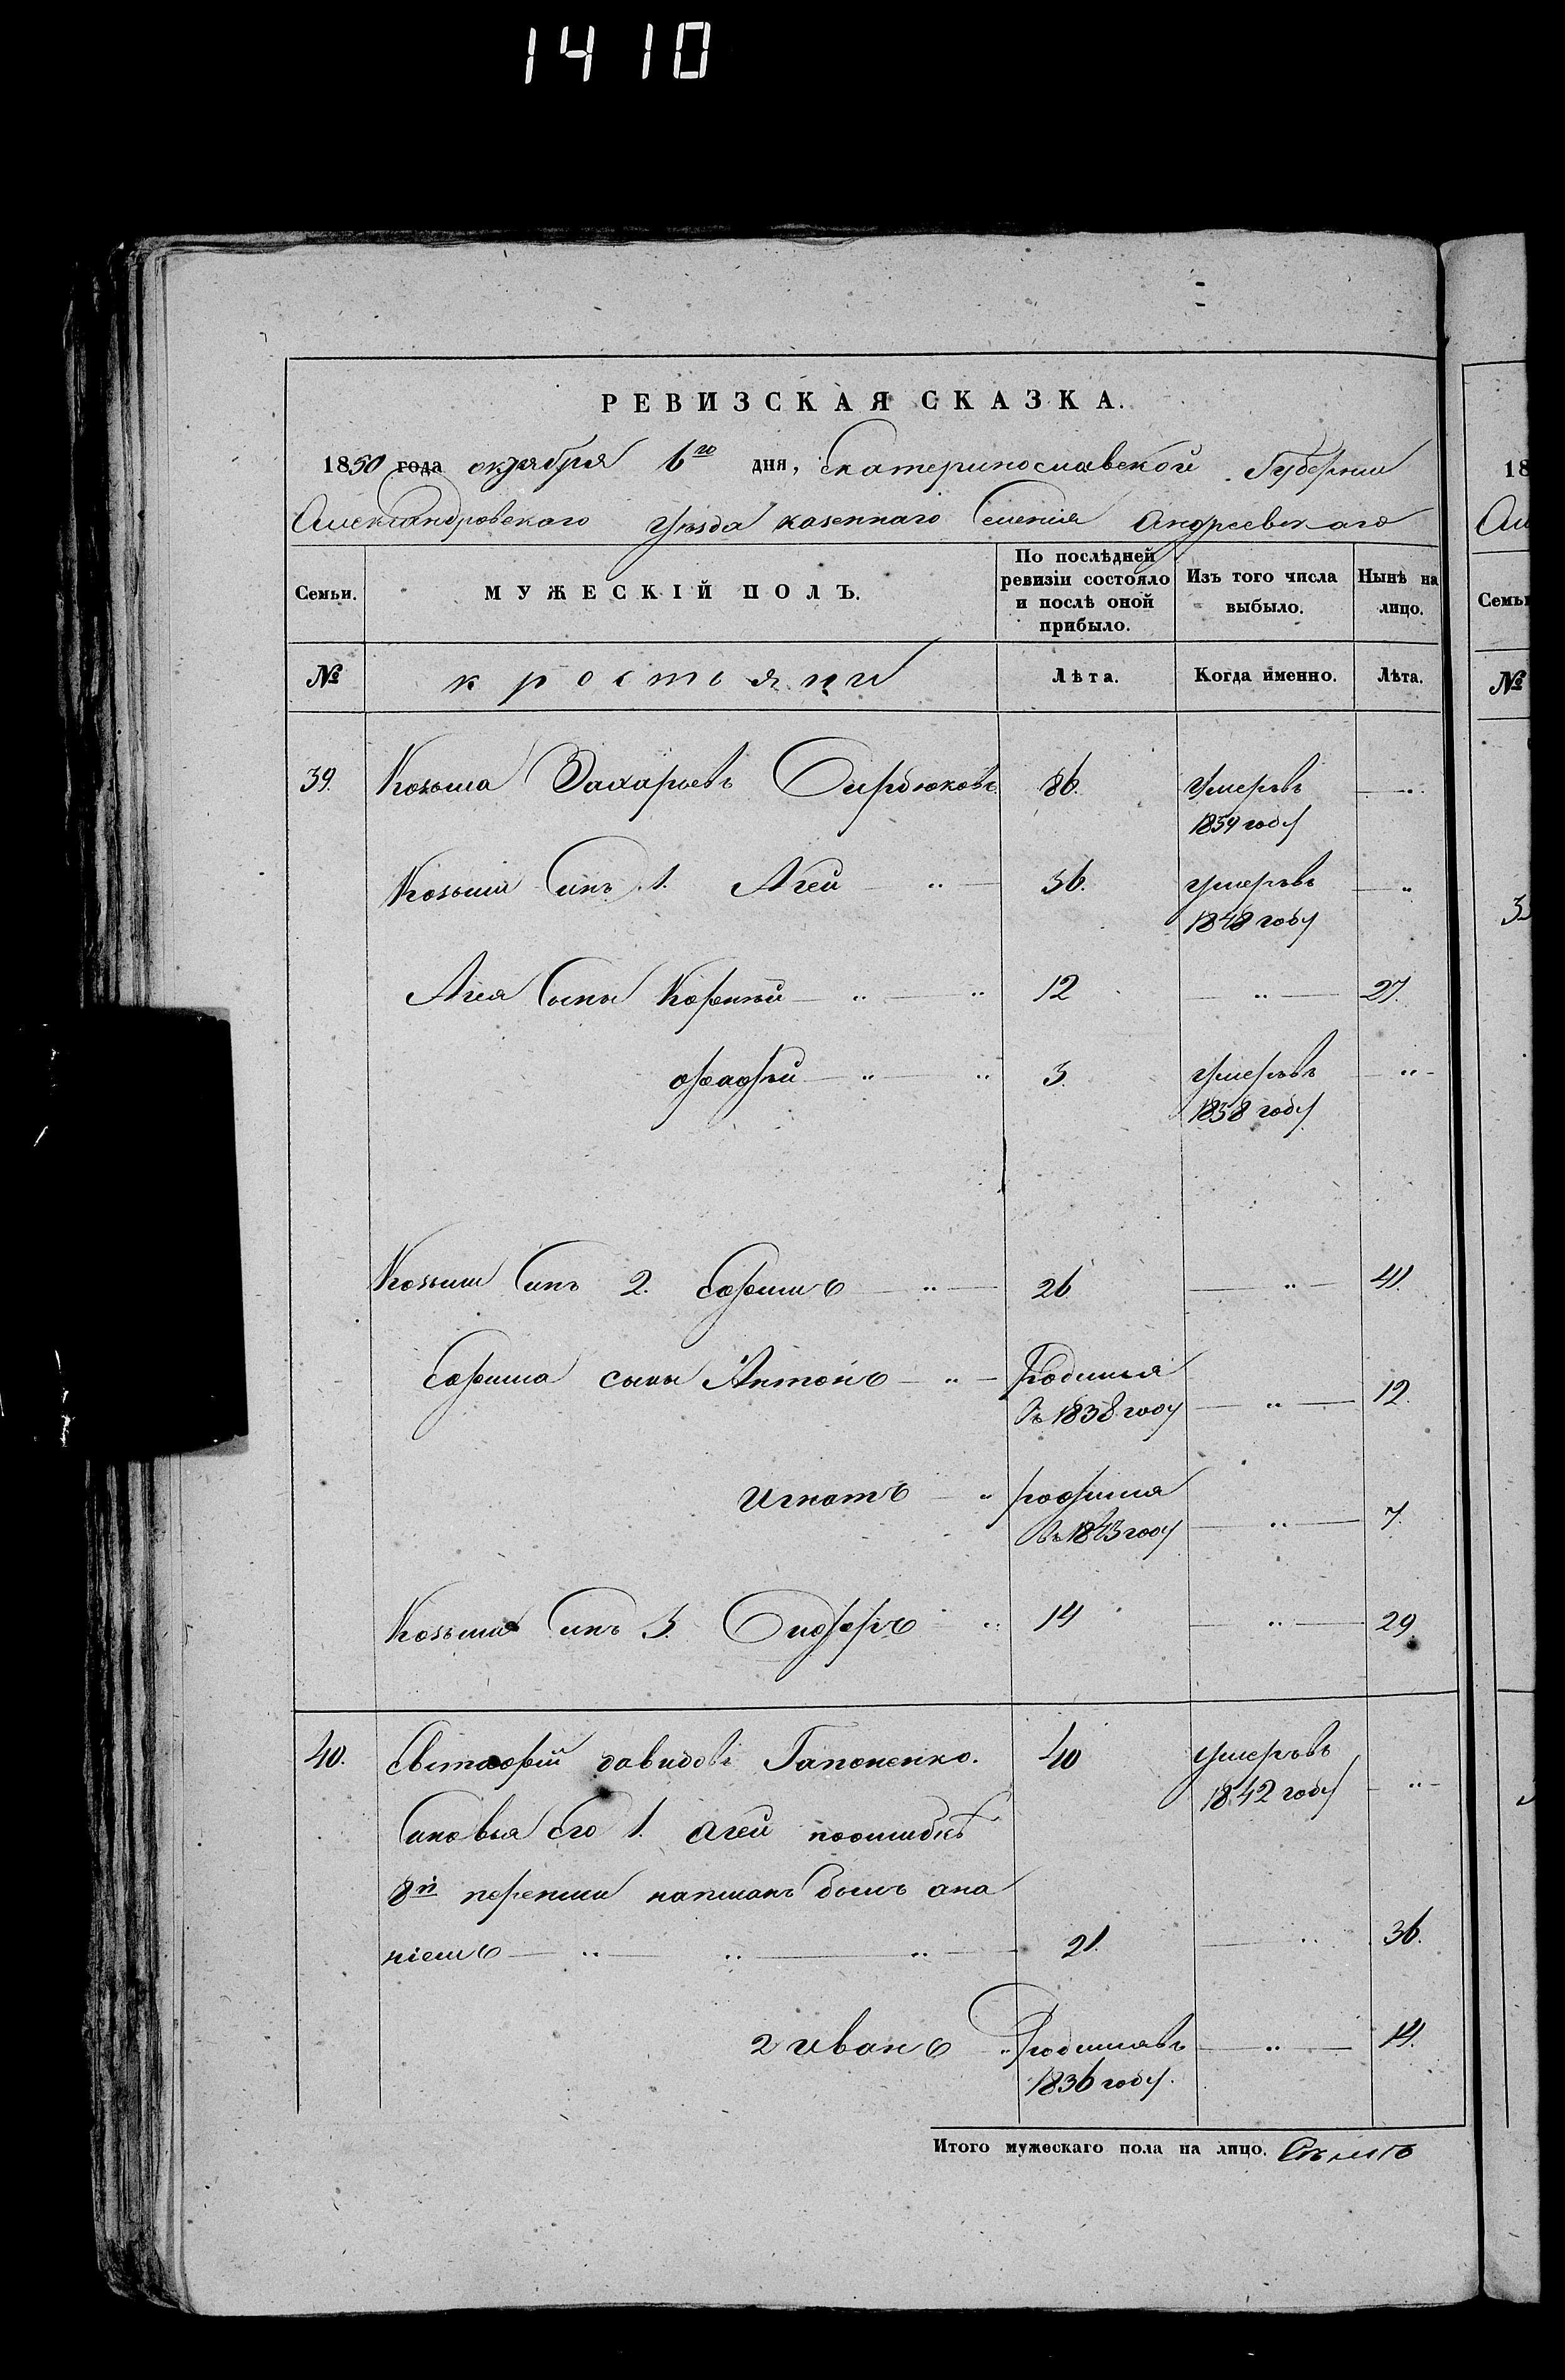 1410
РЕВИЗСКАЯ СКАЗКА.
1850 года октября 6го дня, Екатеринославской Губернии
Александровского Уѣзда казеннаго Селенія Андреевскаго
Семьи. МУЖЕСКІЙ ПОЛЪ. По послѣдней ревизіи состояло и послѣ оной прибыло. Изъ того числа выбыло. Нынѣ на лицо.
№ крестьяни Лѣта. Когда именно. Лѣта.
39. Козьма Захарьевъ Сирдюковъ 86. Умеръвъ
1839 году
Козьми Синъ 1. Агей 36. умеръвъ
1848 году
Агея Сыны Корнѣй 12 27.
Фадѣй 3. Умеръвъ
1838 году
Козьми Синъ 2. Ефимъ 26 41.
Ефима сыны Антонъ Родился
въ 1838 году 12.
Игнатъ родился
въ 1843 году 7.
Козьми Синъ 3. Сидоръ 14 29.
40. Евстафій давидовъ Гапоненко. 40 умеръвъ
1842 году
Сыновья его 1. Агей поошибкѣ
8й переписи написанъ былъ ана
ніемъ 21. 36.
2 иванъ Родилсявъ 14.
1836 году.
Итого мужескаго пола на лицо. Семь
18
Ал
Семьи
№